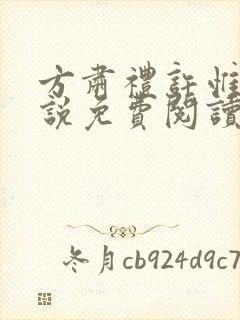 方肅禮許惟
說免費閱讀
冬月cb924d9c7